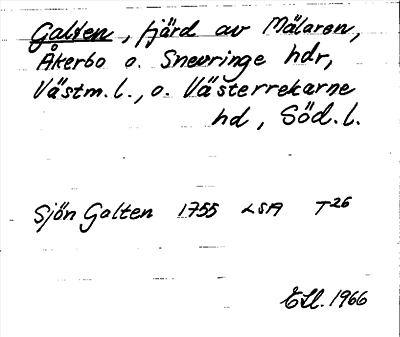 Galten, fjärd av Mälaren,
Åkerbo o. Snevringe hdr,
Västm. l., o. Västerrekarne
hd, Söd. l.
Sjön Galten 1755 LSA T26
1966